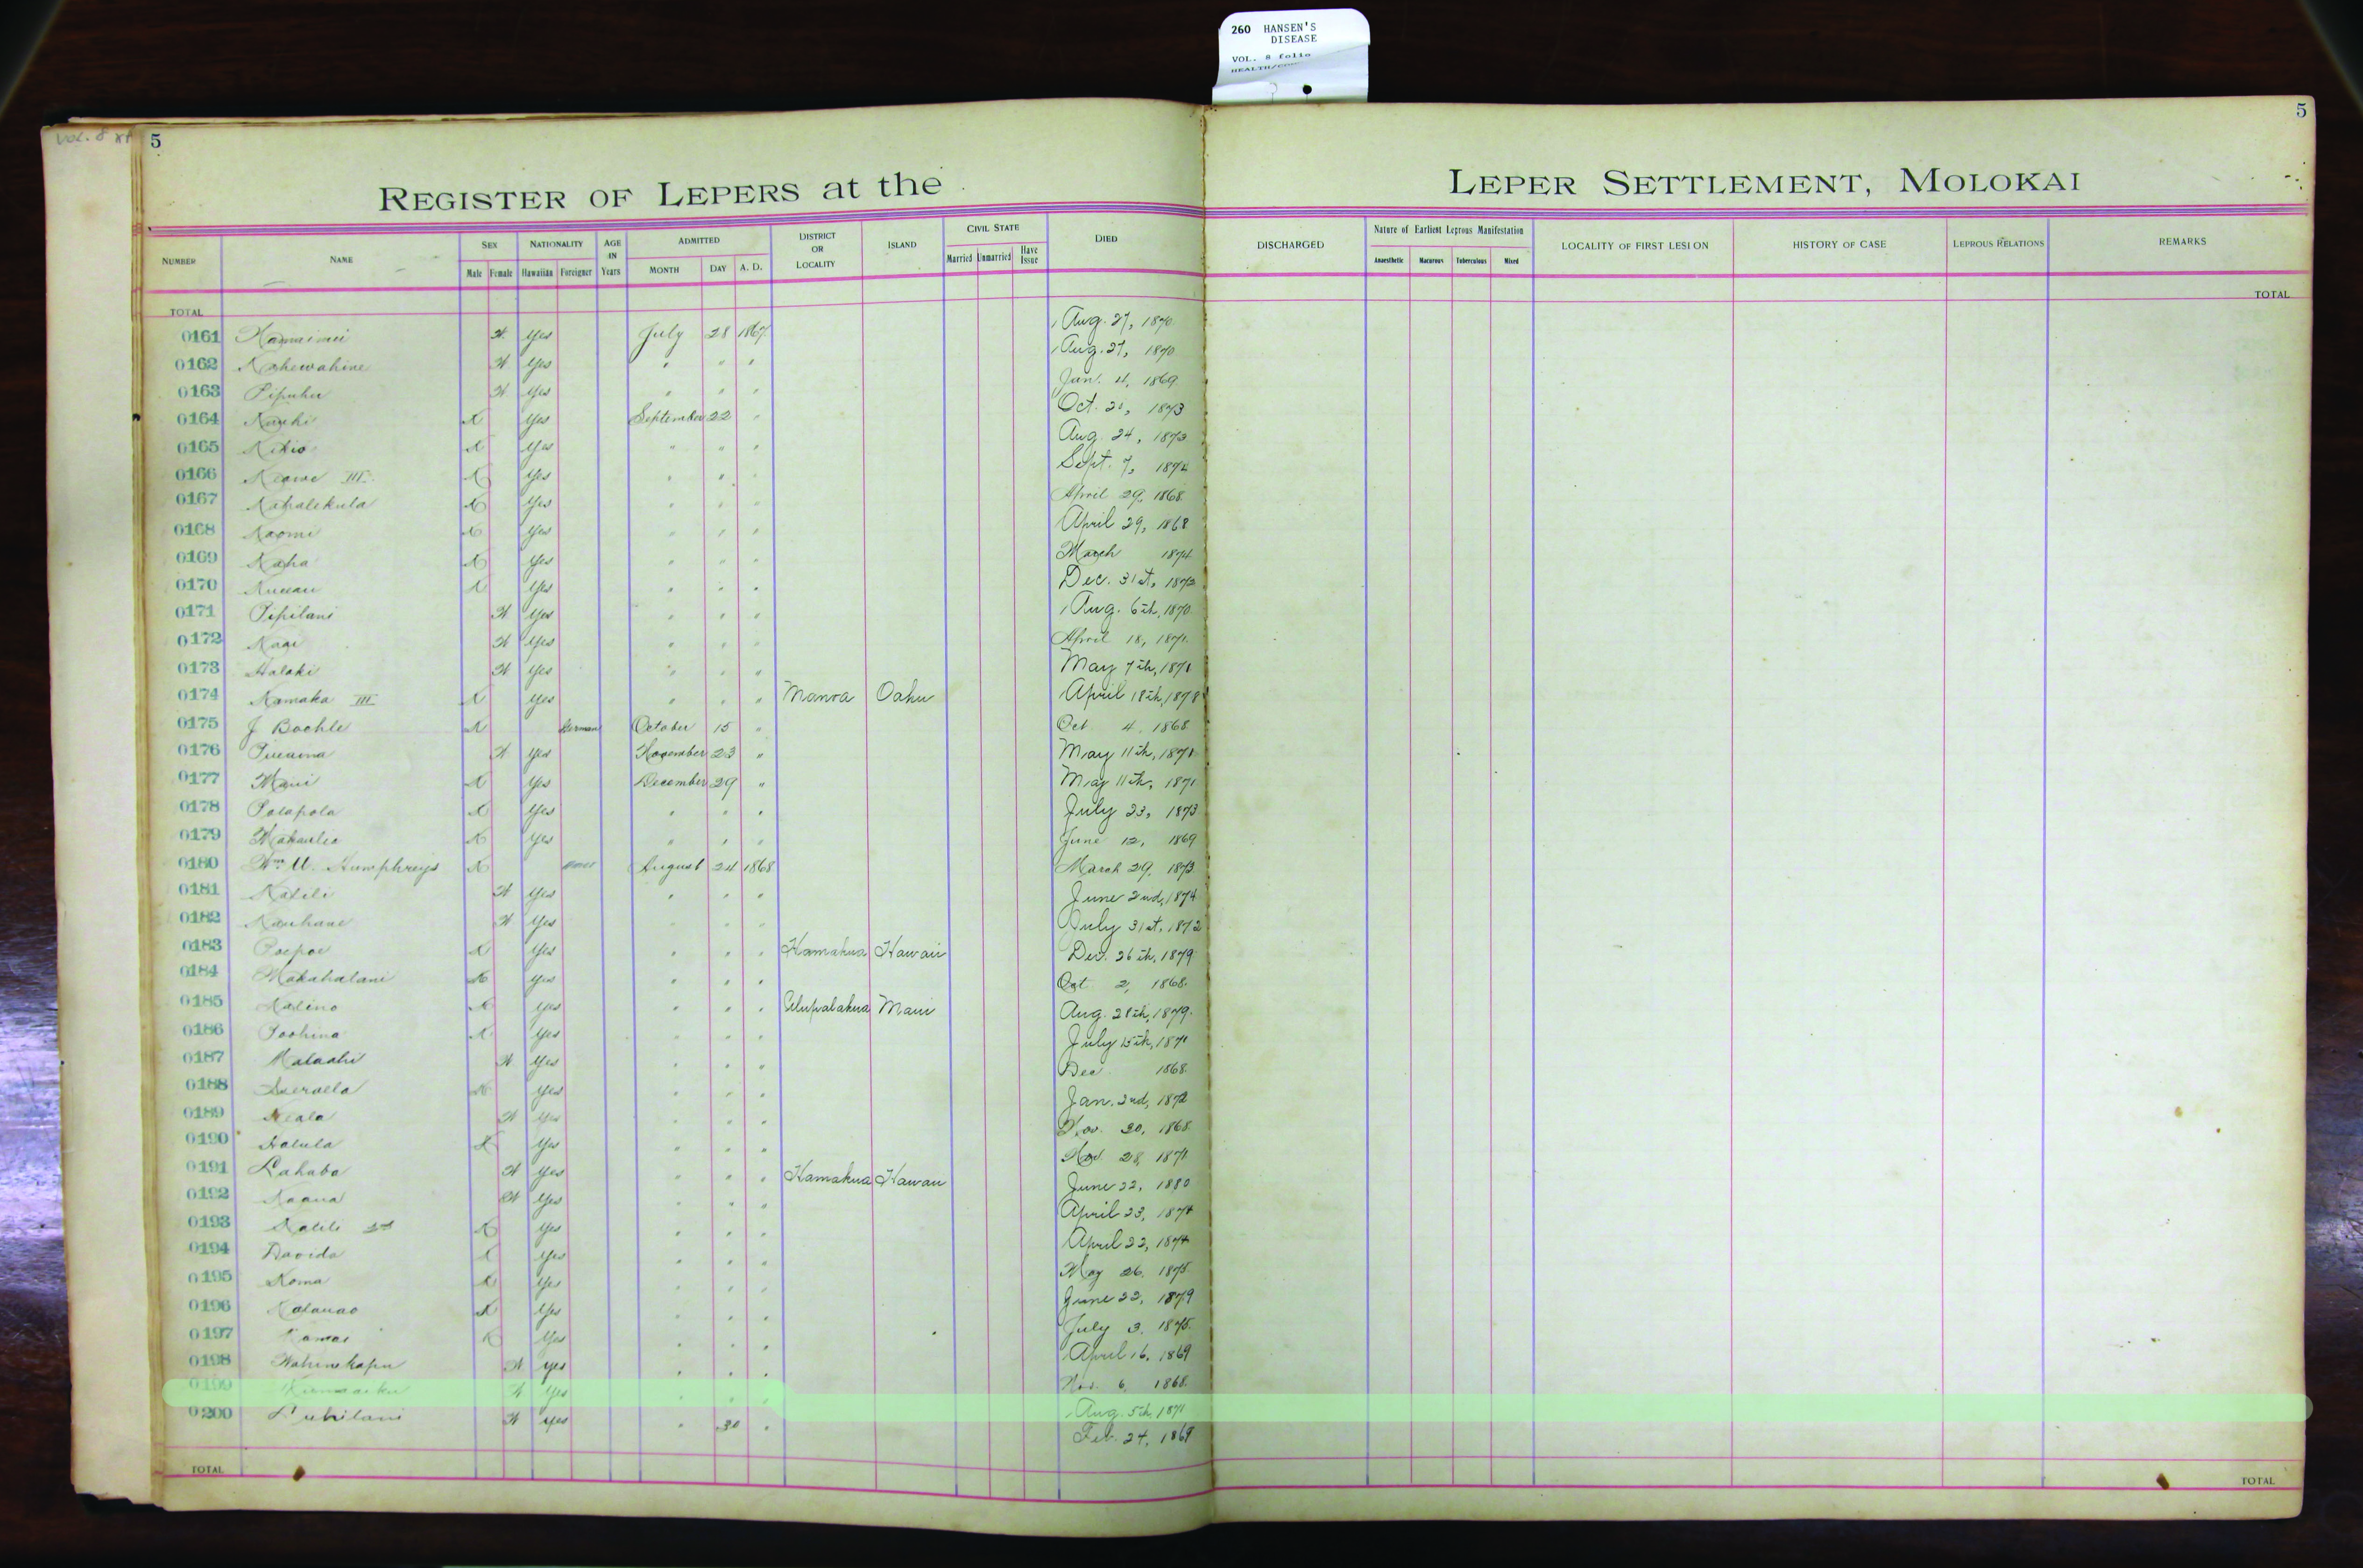 260 HANSEN'S
DISEASE
VOL. 8 folio
VOL. 8
5
5
REGISTER OF LEPERS at the LEPER SETTLEMENT, MOLOKAI
NUMBER NAME SEX Male Female NATIONALITY Hawaiian Foreigner AGE IN Years ADMITTED MONTH DAY A. D. DISTRICT OR LOCALITY ISLAND CIVIL STATE Married Unmarried Have Issue DIED DISCHARGED Nature of Earliest Leprous Manifestation Anaesthetic Macurous Tuberculous Mixed LOCALITY OF FIRST LESION HISTORY OF CASE LEPROUS RELATIONS REMARKS
TOTAL TOTAL
0161 Yes July 28 1867 Aug. 27, 1870
0162 Kahewahine Yes " " " Aug. 27, 1870
0163 Pipuhu Yes " " " Jan. 4, 1869
0164 X Yes September 22 " Oct. 1873
0165 Kikio X Yes " " " Aug. 24, 1873
0166 Keawe III X Yes " " " Sept. 7, 1874
0167 Kahalekula X Yes " " " April 29, 1868
0168 Naomi X Yes " " " April 29, 1868
0169 Kaha X Yes " " " March 1874
0170 X Yes " " " Dec. 31st, 1873
0171 Pipilani Yes " " " Aug. 6th, 1870
0172 Yes " " " April 18, 1871
0173 Halaki Yes " " " May 7th, 1871
0174 Kamaka III X Yes " " " Manoa Oahu April 18th, 1878
0175 J Boehle X German October 15 " Oct 4, 1868
0176 Yes November 23 " May 11th, 1871
0177 Maui X Yes December 29 " May 11th, 1871
0178 Polapola X Yes " " " July 23, 1873
0179 X Yes " " " June 12, 1869
0180 Wm. Humphreys X August 24 1868 March 29, 1873
0181 Kalili Yes " " " June 2nd, 1874
0182 Kauhane Yes " " " July 31st, 1872
0183 Poepoe X Yes " " " Hamakua Hawaii Dec. 26th, 1879
0184 Makahalani X Yes " " " Oct 2, 1868
0185 Kalino X Yes " " " Ulupalakua Maui Aug. 28th, 1879
0186 Poohina X Yes " " " July 15th, 1871
0187 Malaahi Yes " " " Dec 1868
0188 X Yes " " " Jan. 2nd, 1872
0189 Keala Yes " " " Nov. 30, 1868
0190 Halula X Yes " " " Nov. 28, 1871
0191 Lahaba Yes " " " Hamakua Hawaii June 22, 1880
0192 Kaaua Yes " " " April 23, 1874
0193 Kalili X Yes " " " April 22, 1874
0194 Davida X Yes " " " May 26, 1875
0195 Koma X Yes " " " June 22, 1879
0196 Kalauao X Yes " " " July 3, 1875
0197 Kamai X Yes " " " April 16, 1869
0198 Wahinekapu Yes " " " Nov. 6, 1868
0199 Yes " " " Aug. 5th, 1871
0200 Yes " 30 " Feb. 24, 1869
TOTAL TOTAL